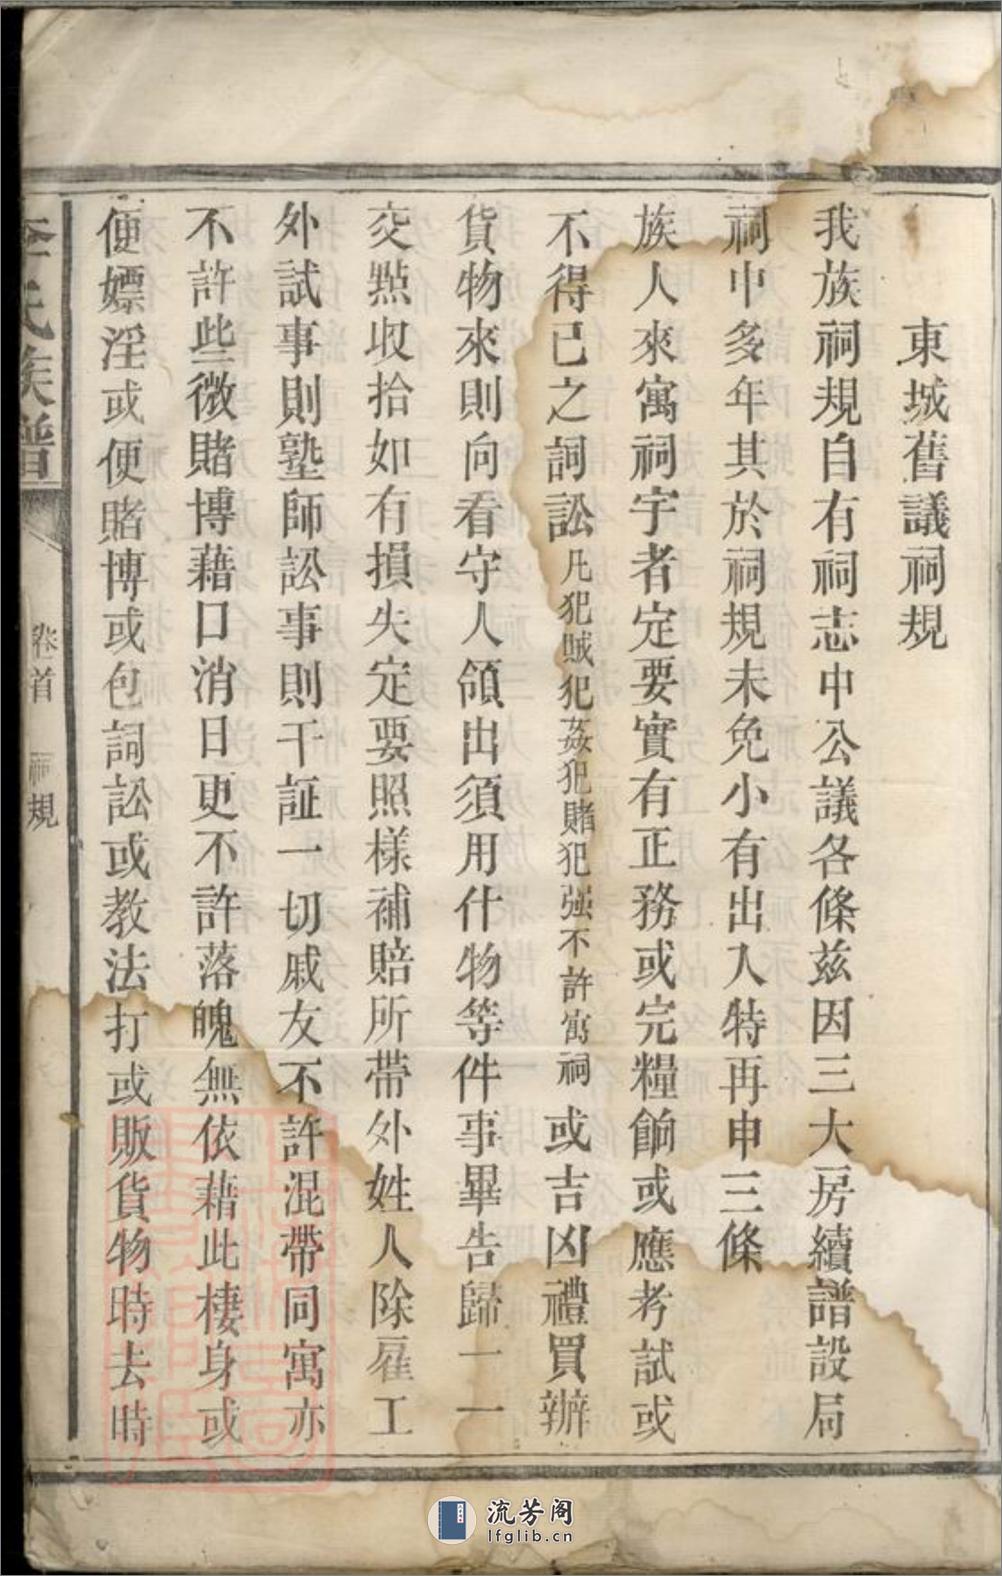 東城舊議祠規
我族祠規自有祠志中公議各條茲因三大房續譜設局
祠中多年其於祠規未免小有出入特再申三條
族人來寓祠宇者定要實有正務或完糧餉或應考試或
不得已之詞訟凡犯賊犯姦犯賭犯强不許寓祠或吉凶禮買辦
貨物來則向看守人領出須用什物等件事畢告歸一一
交點收拾如有損失定要照樣補賠所帶外姓人除雇工
外試事則塾師訟事則干証一切戚友不許混帶同寓亦
不許些微賭博藉口消日更不許落魄無依藉此棲身或
便嫖淫或便賭博或包詞訟或教法打或販貨物時去時
李氏族譜
卷首
祠規
流芳阁
lfglib.cn